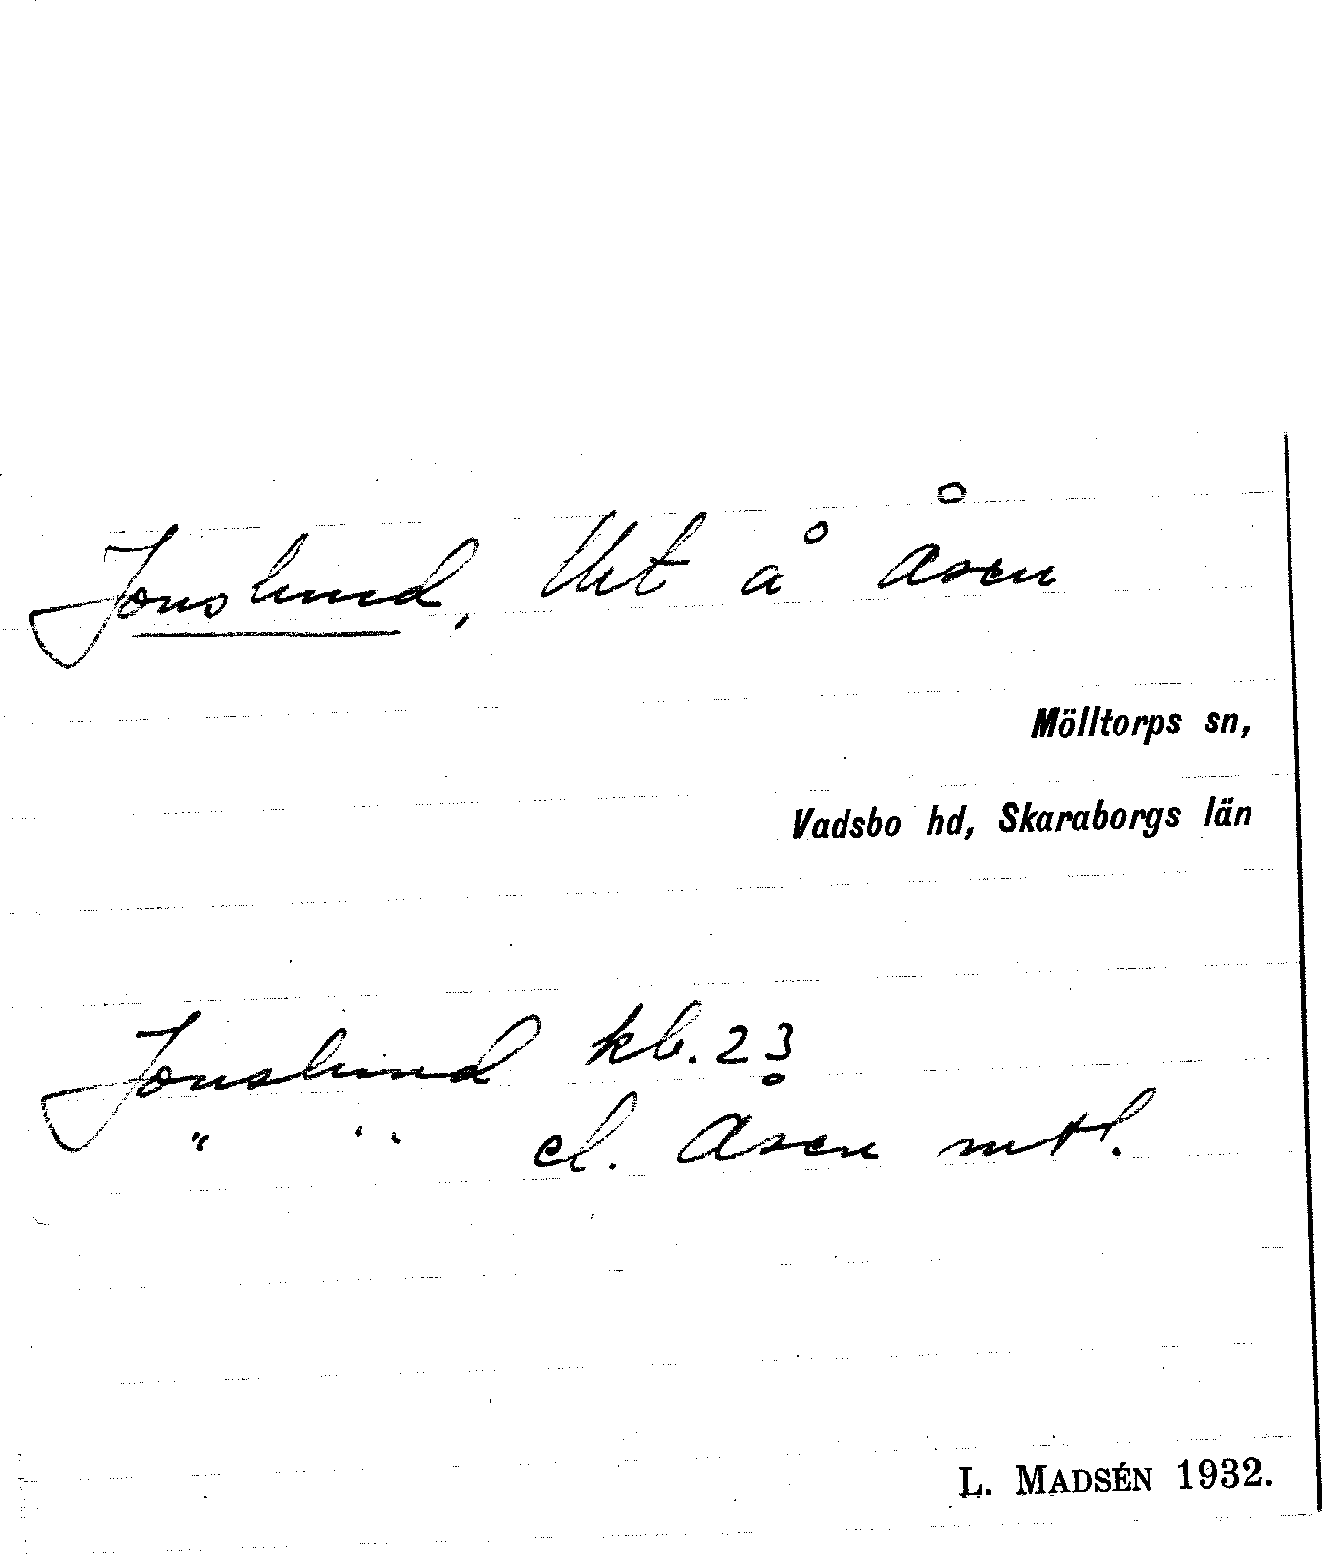 Jonslund, Utt å Åsen
Mölltorps sn,
Vadsbo hd, Skaraborgs län
Jonslund kb. 23
" " el. Åsen mtl.
L. MADSÉN 1932.